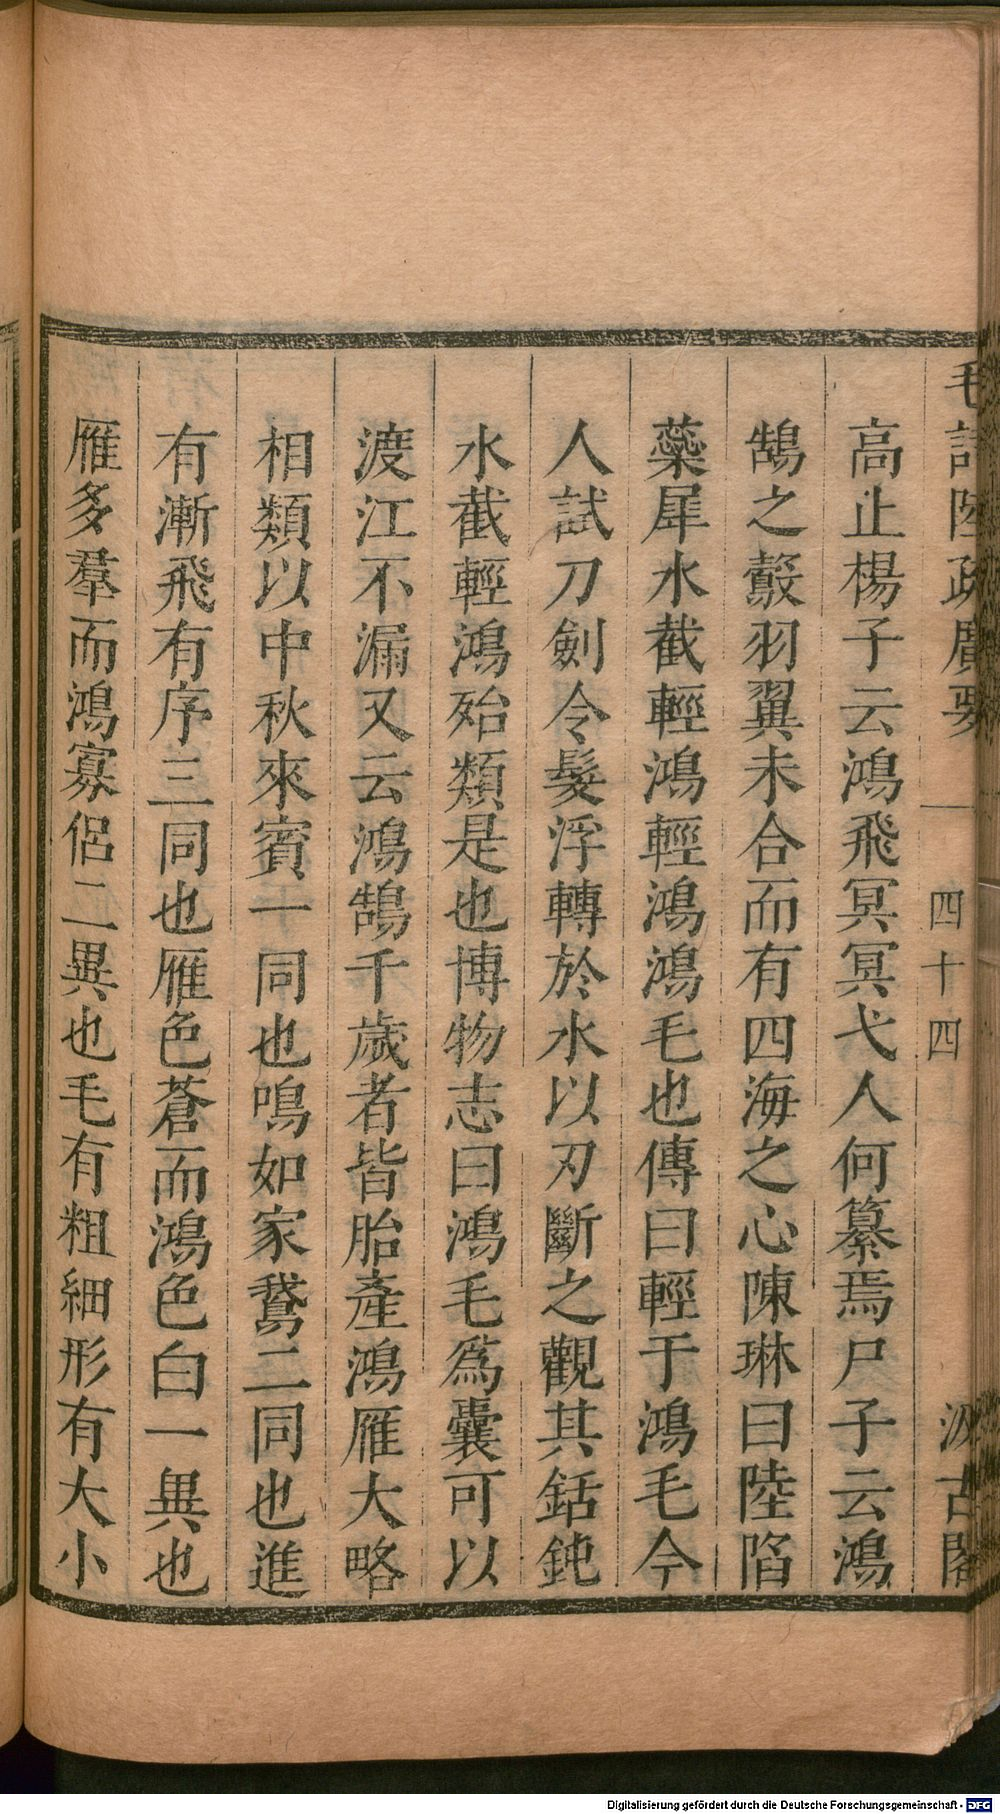 毛詩陸疏廣要
四十四
汲古閣
高止楊子云鴻飛冥冥弋人何纂焉尸子云鴻
鵠之鷇羽翼未合而有四海之心陳琳曰陸陷
蘂犀水截輕鴻輕鴻鴻毛也傳曰輕于鴻毛今
人試刀劍令髮浮轉於水以刃斷之觀其銛鈍
水截輕鴻殆類是也博物志曰鴻毛為囊可以
渡江不漏又云鴻鵠千歲者皆胎產鴻雁大略
相類以中秋來賓一同也鳴如家鵞二同也進
有漸飛有序三同也雁色蒼而鴻色白一異也
雁多羣而鴻寡侶二異也毛有粗細形有大小
Digitalisierung gefördert durch die Deutsche Forschungsgemeinschaft - DFG